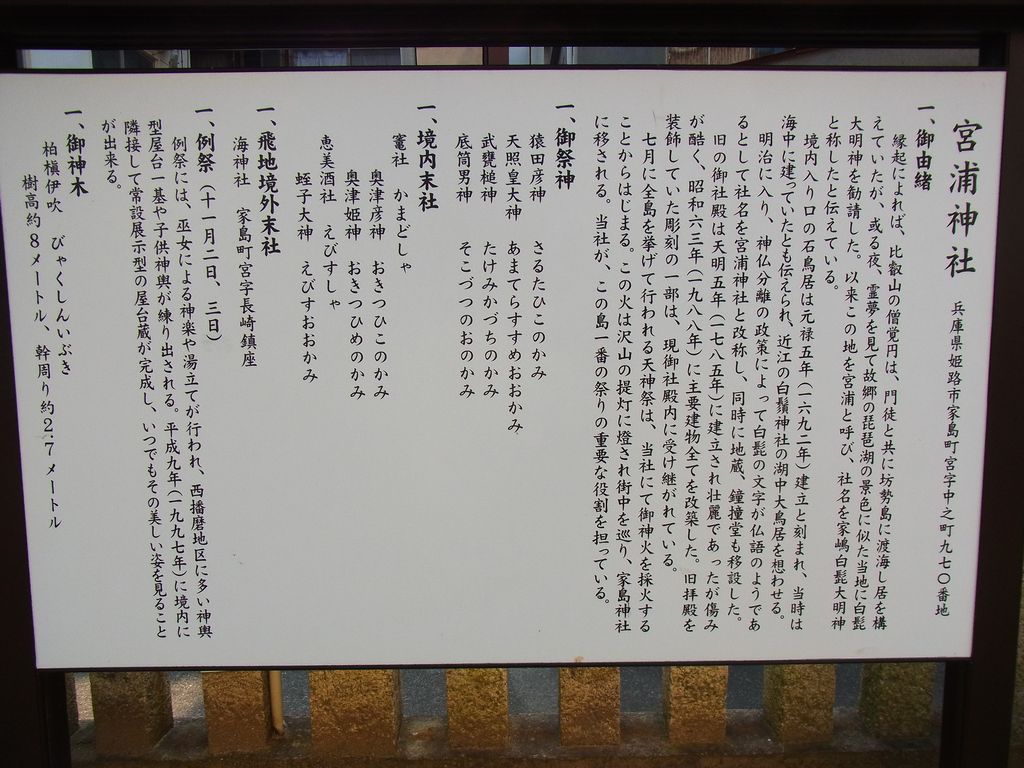 宮浦神社　兵庫県姫路市家島町宮字中之町九七〇番地
一、御由緒
縁起によれば、比叡山の僧覚円は、門徒と共に坊勢島に渡海し居を構
えていたが、或る夜、霊夢を見て故郷の琵琶湖の景色に似た当地に白髭
大明神を勧請した。以来この地を宮浦と呼び、社名を家嶋白髭大明神
と称したと伝えている。
境内入り口の石鳥居は元禄五年（一六九二年）建立と刻まれ、当時は
海中に建っていたとも伝えられ、近江の白鬚神社の湖中大鳥居を想わせる。
明治に入り、神仏分離の政策によって白髭の文字が仏語のようであ
るとして社名を宮浦神社と改称し、同時に地蔵、鐘撞堂も移設した。
旧の御社殿は天明五年（一七八五年）に建立され壮麗であったが傷み
が酷く、昭和六三年（一九八八年）に主要建物全てを改築した。旧拝殿を
装飾していた彫刻の一部は、現御社殿内に受け継がれている。
七月に全島を挙げて行われる天神祭は、当社にて御神火を採火する
ことからはじまる。この火は沢山の提灯に燈され街中を巡り、家島神社
に移される。当社が、この島一番の祭りの重要な役割を担っている。
一、御祭神
猿田彦神　さるたひこのかみ
天照皇大神　あまてらすすめおおかみ
武甕槌神　たけみかづちのかみ
底筒男神　そこづつのおのかみ
一、境内末社
竃社　かまどしゃ
奥津彦神　おきつひこのかみ
奥津姫神　おきつひめのかみ
恵美酒社　えびすしゃ
蛭子大神　えびすおおかみ
一、飛地境外末社
海神社　家島町宮字長崎鎮座
一、例祭（十一月二日、三日）
例祭には、巫女による神楽や湯立てが行われ、西播磨地区に多い神輿
型屋台一基や子供神輿が練り出される。平成九年（一九九七年）に境内に
隣接して常設展示型の屋台蔵が完成し、いつでもその美しい姿を見ること
が出来る。
一、御神木
柏槇伊吹　びゃくしんいぶき
樹高約8メートル、幹周り約2.7メートル